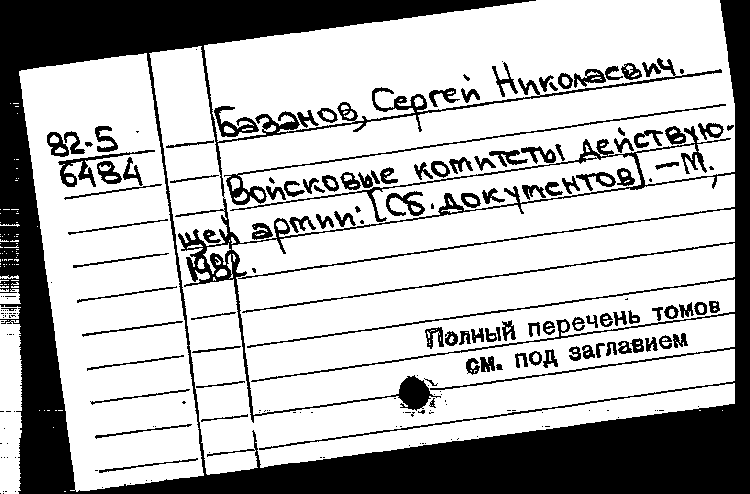 82-5
6484
Базанов, Сергей Николаевич.
Войсковые комитеты действую-
щей армии: [Сб. документов]. — М.,
1982.
Полный перечень томов
см. под заглавием